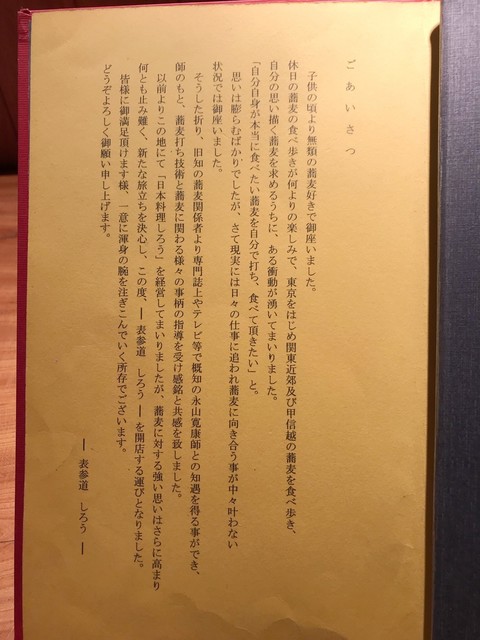 ごあいさつ
子供の頃より無類の蕎麦好きで御座いました。
休日の蕎麦の食べ歩きが何よりの楽しみで、東京をはじめ関東近郊及び甲信越の蕎麦を食べ歩き、
自分の思い描く蕎麦を求めるうちに、ある衝動が湧いてまいりました。
「自分自身が本当に食べたい蕎麦を自分で打ち、食べて頂きたい」と。
思いは膨らむばかりでしたが、さて現実には日々の仕事に追われ蕎麦に向き合う事が中々叶わない
状況では御座いました。
そうした折り、旧知の蕎麦関係者より専門誌上やテレビ等で既知の永山寛康師との知遇を得る事ができ、
師のもと、蕎麦打ち技術と蕎麦に関わる様々の事柄の指導を受け感銘と共感を致しました。
以前よりこの地にて「日本料理しろう」を経営してまいりましたが、蕎麦に対する強い思いはさらに高まり
何とも止み難く、新たな旅立ちを決心し、この度、― 表参道 しろう ― を開店する運びとなりました。
皆様に御満足頂けます様、一意に渾身の腕を注ぎこんでいく所存でございます。
どうぞよろしく御願い申し上げます。
― 表参道 しろう ―